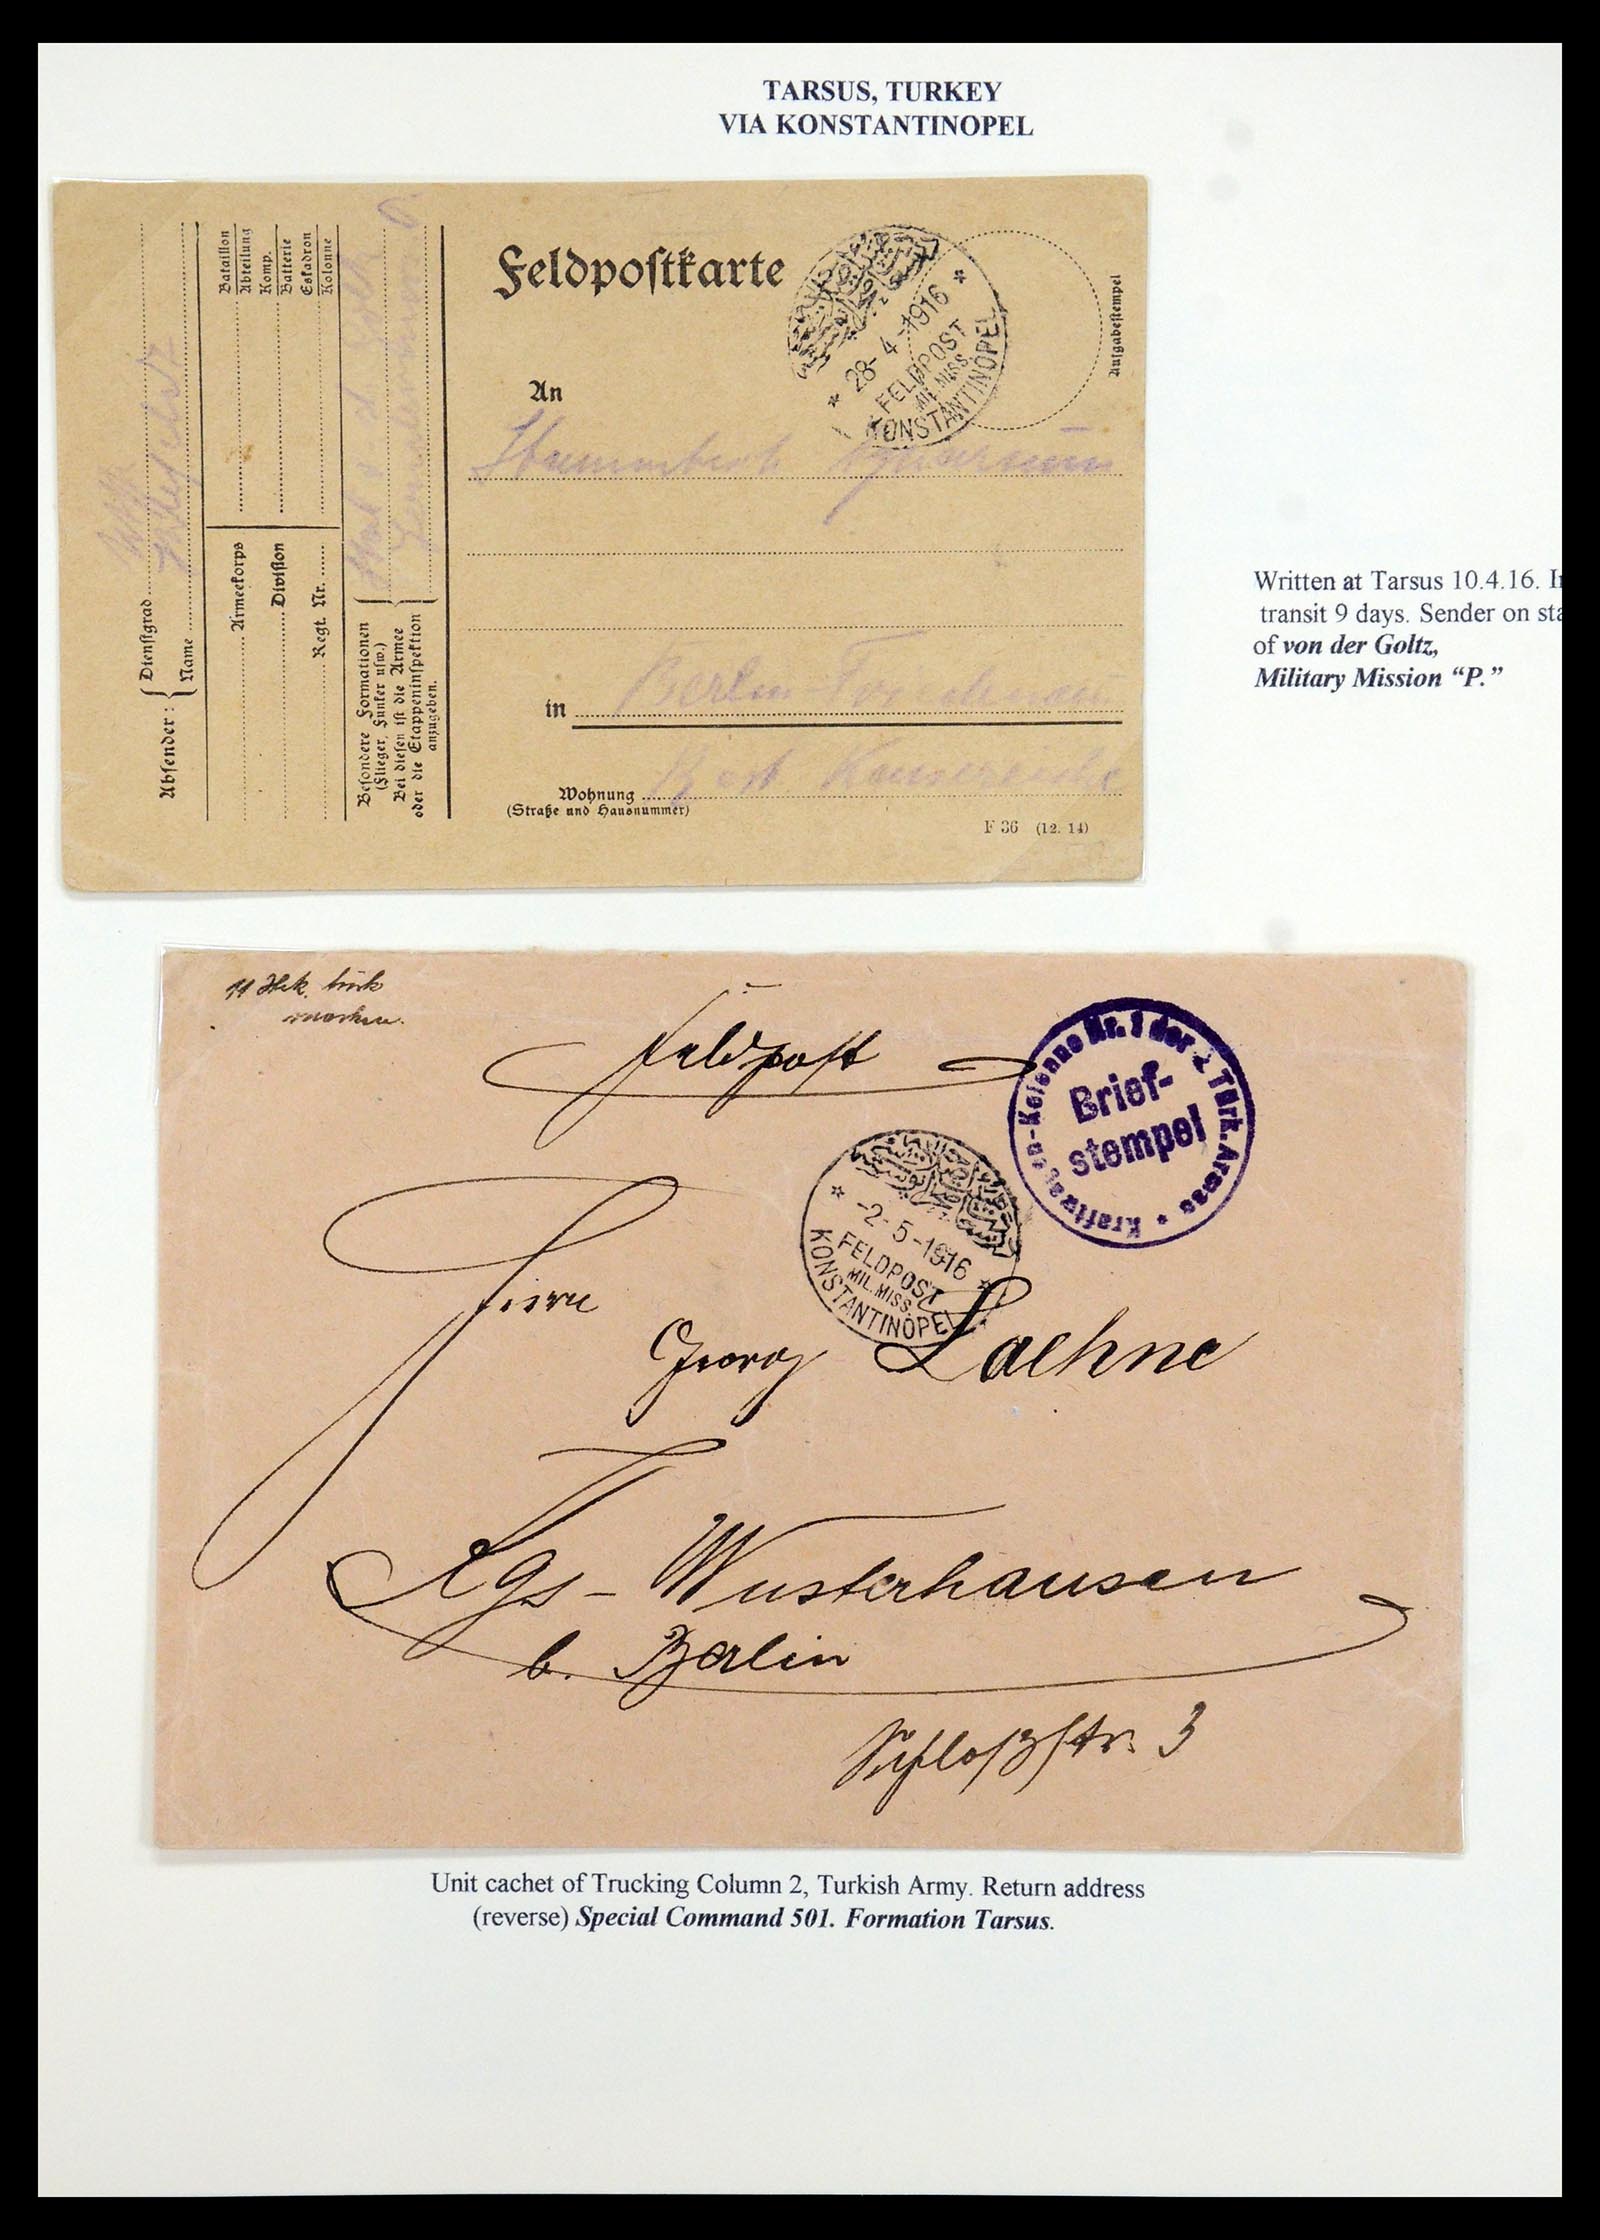 TARSUS, TURKEY
VIA KONSTANTINOPEL
Feldpostkarte
Aufgabestempel
28-4-1916
FELDPOST
MIL. MISS.
KONSTANTINOPEL
An
in Berlin Friedenau
Wohnung
(Straße und Hausnummer)
F 36 (12. 14)
Absender:
Dienstgrad
Name
Armeekorps
Division
Regt. Nr.
Bataillon
Abteilung
Komp.
Batterie
Eskadron
Kolonne
Besondere Formationen
(Flieger, Funker usw.)
Bei diesen ist die Armee
oder die Etappeninspektion
anzugeben.
Written at Tarsus 10.4.16. In
transit 9 days. Sender on sta
of von der Goltz,
Military Mission “P.”
Feldpost
Kraftwagen-Kolonne Nr. 1 der 2. Türk. Armee
Brief-
stempel
-2-5-1916
FELDPOST
MIL. MISS.
KONSTANTINOPEL
Herrn
Georg Laehne
Kgs-Wusterhausen
b. Berlin
Schloßstr. 3
Unit cachet of Trucking Column 2, Turkish Army. Return address
(reverse) Special Command 501. Formation Tarsus.